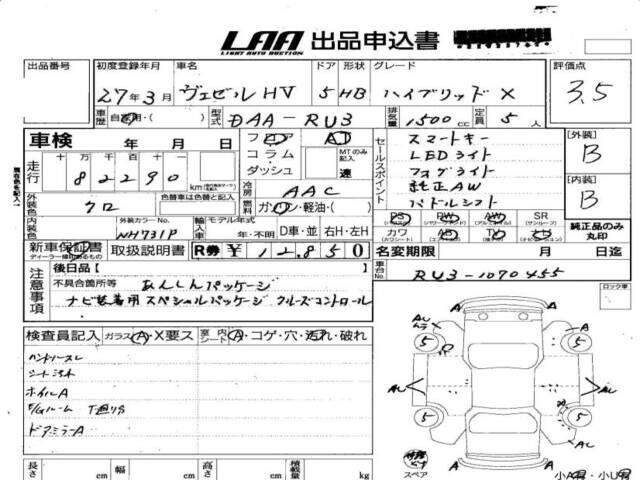 LAA 出品申込書
LIGHT AUTO AUCTION
出品番号 初度登録年月 車名 ドア 形状 グレード 評価点
27年3月 ヴェゼルHV 5 HB ハイブリッドX 3.5
車歴 自家用・( ) 型式 DAA-RU3 排気量 1500cc 定員 5人
車検 年 月 日 フロア AT
コラム・ダッシュ MTのみ記入 速
セールスポイント
スマートキー
LEDライト
フォグライト
純正AW
パドルシフト
[外装] B
[内装] B
走行 十 万 千 百 十 一
82290 km
冷房 AAC
外装色 クロ 色替車は色替と記入
燃料 ガソリン・軽油・( )
内装色 外装カラーNo. NH731P
輸入車 モデル年式 年・不明 D車・並 右H・左H
PS PW AW SR
(サンルーフ)
カワ AB TV ナビ
純正品のみ丸印
新車保証書 取扱説明書 R券 ¥12,850
ディーラー印のあるもの
名変期限 月 日迄
車台No. RU3-1070455
注意事項
後日品[ ]
不具合箇所等 あんしんパッケージ
ナビ装着用スペシャルパッケージ クルーズコントロール
ロック車
検査員記入 ガラス A・X要ス 室内 シート A・コゲ・穴・汚れ・破れ
ハンドルスレ
シート汚れ
ホイルA
ドアミラーA
AU
A
5 5
AU AU
5 5
AU
A A
スペア
長さ cm 幅 cm 高さ cm 積載量 kg